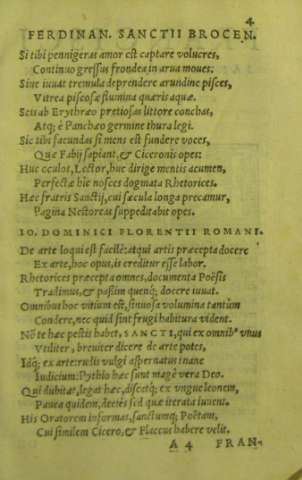 4
FERDINAN. SANCTII BROCEN.
Si tibi pennigeras amor est captare volucres,
Continuo gressus frondea in arua moues:
Sine iuuat tremula deprendere arundine pisces,
Vitrea piscosæ flumina quæris aquæ.
Seu ab Erythræo pretiosas littore conchas,
Atq; è Panchæo germine thura legi.
Sic tibi facundas si mens est fundere voces,
Quæ Fabij sapiant, & Ciceronis opes:
Huc oculos, Lector, huc dirige mentis acumen,
Perfectæ hîc nosces dogmata Rhetorices.
Hæc fratris Sanctij, cui sæcula longa precamur,
Pagina Nestoreas suppeditabit opes.
IO. DOMINICI FLORENTII ROMANI.
De arte loqui est facile: at qui artis præcepta docere
Ex arte, hoc opus, is creditur esse labor.
Rhetorices præcepta omnes, documenta Poësis
Tradimus, & passim quenq; docere iuuat.
Omnibus hoc vitium est, sinuosa volumina tantùm
Condere, nec quid sint frugi habitura vident.
Nõ te hæc pestis habet, SANCTI, qui ex omnibꝰ vnus
Vtiliter, breuiter dicere de arte potes,
Idq; ex arte: rudis vulgi aspernatus inane
Iudicium: Pythio hæc sunt magè vera Deo.
Qui dubitat, legat hæc, discatq; ex vngue leonem,
Pauca quidem, decies sed quæ iterata iuuent.
His Oratorem informas, sanctumq; Poëtam,
Cui similem Cicero, & Flaccus habere velit.
A 4 FRAN-